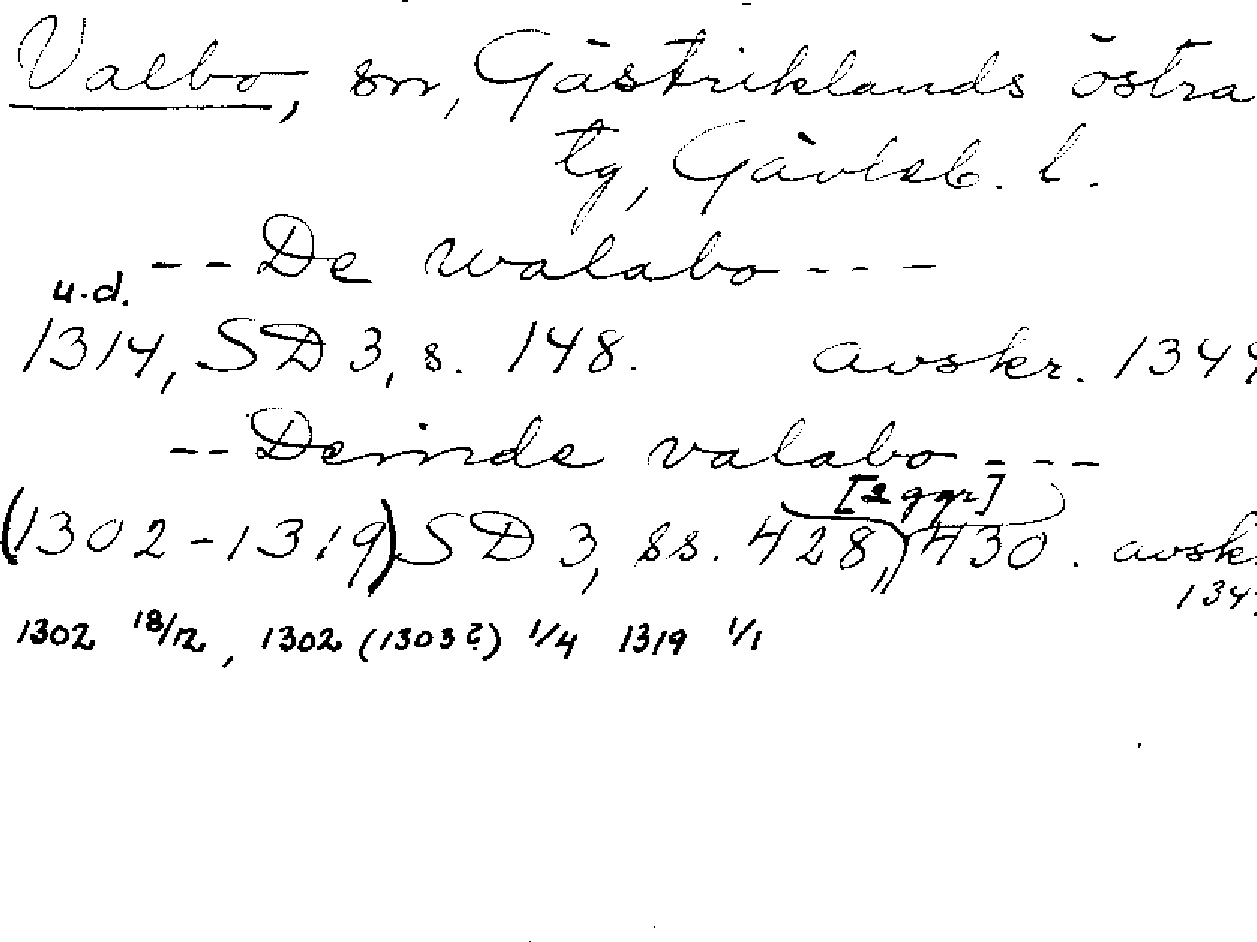 Valbo, sn, Gästriklands östra
tg, Gävleb. l.
-- De walabo ---
u.d.
1314, SD 3, s. 148. avskr. 1344
-- Deinde valabo ---
[2 ggr]
(1302-1319) SD 3, ss. 428, 430. avsk.
134
1302 18/12, 1302 (1303?) 1/4 1319 1/1